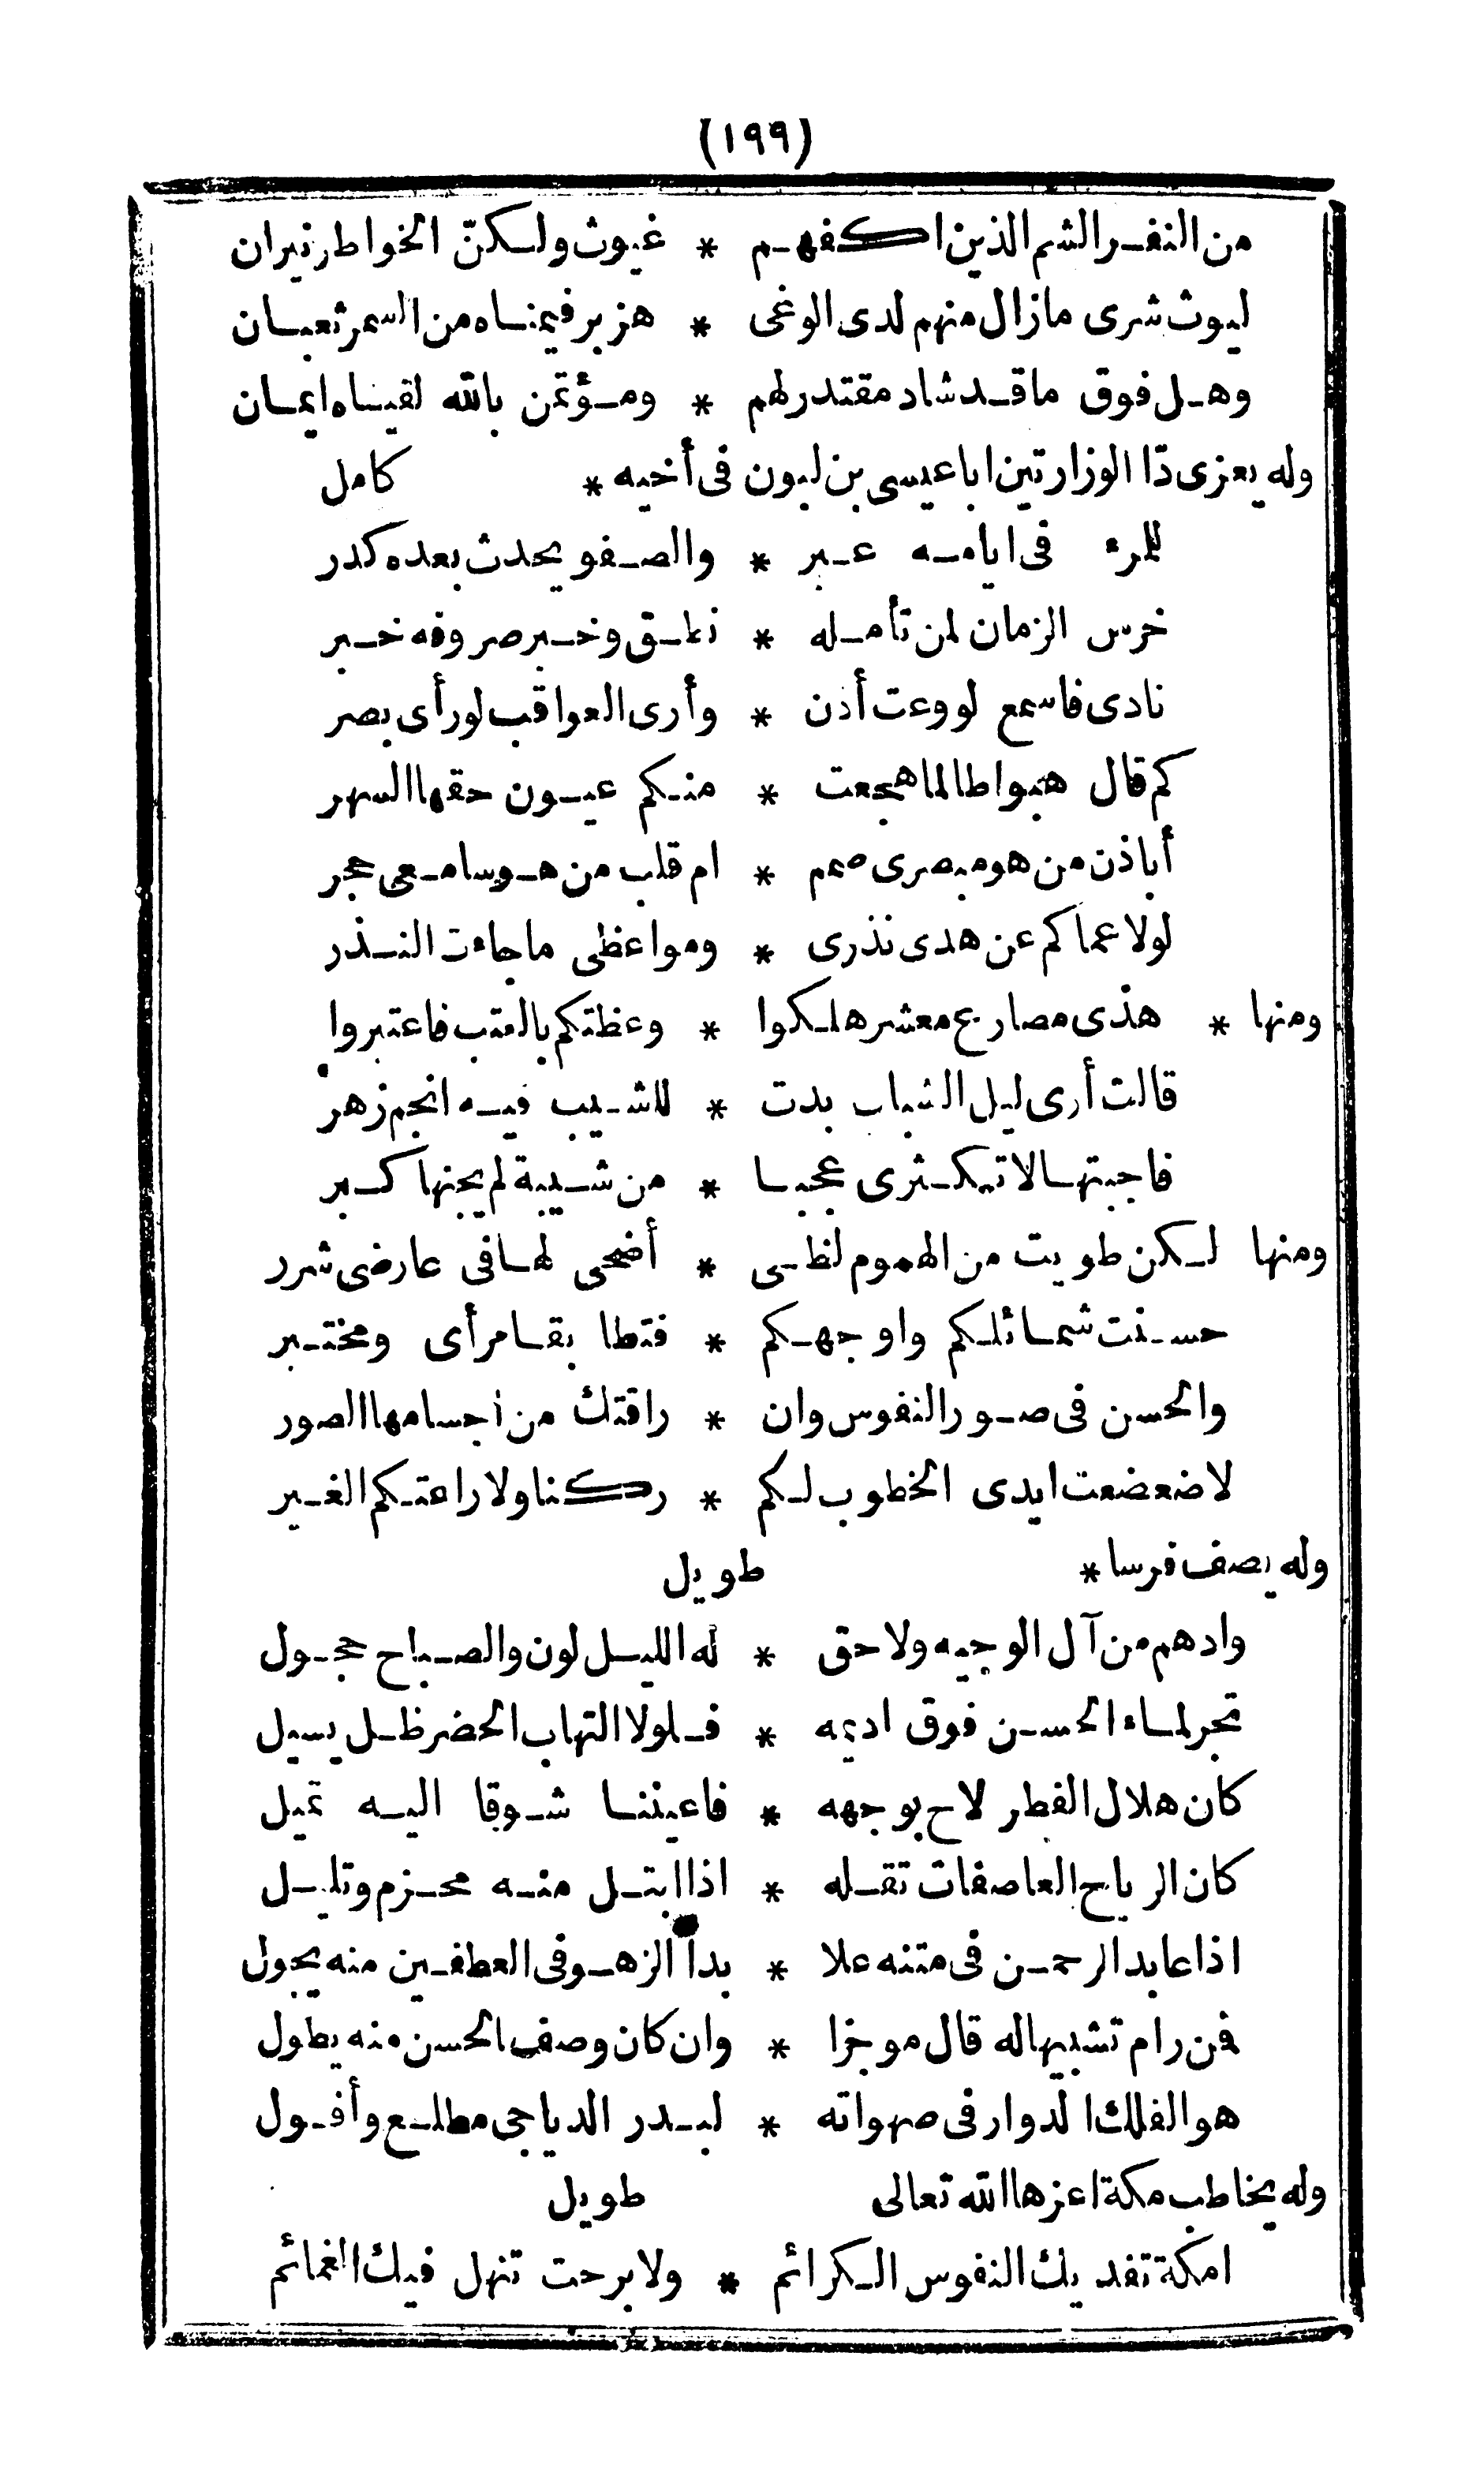 (١٩٩)
من النفر الشم الذين اكفهم * غيوث ولكنّ الخواطر نيران
ليوث شرى مازال منهم لدى الوغى * هزبر فيمناه من السمر ثعبان
وهل فوق ماقد شاد مقتدر لهم * ومؤتمن بالله لقيناه ايمان
وله يعزى ذا الوزارتين ابا عيسى بن لبون فى أخيه * كامل
للمرء فى ايامه عبر * والصفو يحدث بعده كدر
خرس الزمان لمن تأمله * نطق وخبر صروفه خبر
نادى فاسمع لو وعت أذن * وأرى العواقب لو رأى بصر
كم قال هبوا طالما هجعت * منكم عيون حقها السهر
أباذن من هو مبصرى صمم * ام قلب من هو سامعى حجر
لولا عماكم عن هدى نذرى * ومواعظى ماجاءت النذر
ومنها * هذى مصارع معشر هلكوا * وعظتكم بالعتب فاعتبروا
قالت أرى ليل الشباب بدت * للشيب فيه انجم زهر
فاجبتها لا تكثرى عجبا * من شيبة لم يجنها كبر
ومنها لكن طويت من الهموم لظى * أضحى لها فى عارضى شرر
حسنت شمائلكم واوجهكم * فتطابقا مرأى ومختبر
والحسن فى صور النفوس وان * راقتك من أجسامها الصور
لا ضعضعت ايدى الخطوب لكم * ركنا ولا راعتكم الغير
وله يصف فرسا * طويل
وادهم من آل الوجيه ولاحق * له الليل لون والصباح حجول
تحير لماء الحسن فوق اديمه * فلولا التهاب الحضر ظل يسيل
كان هلال الفطر لاح بوجهه * فاعيننا شوقا اليه تميل
كان الرياح العاصفات تقله * اذا ابتل منه محزم وتليل
اذا عابد الرحمن فى متنه علا * بدا الزهو فى العطفين منه يجول
فمن رام تشبيها له قال موجزا * وان كان وصف الحسن منه يطول
هو الفلك الدوار فى صهواته * لبدر الدياجى مطلع وأفول
وله يخاطب مكة اعزها الله تعالى طويل
امكة تفديك النفوس الكرائم * ولا برحت تنهل فيك الغمائم